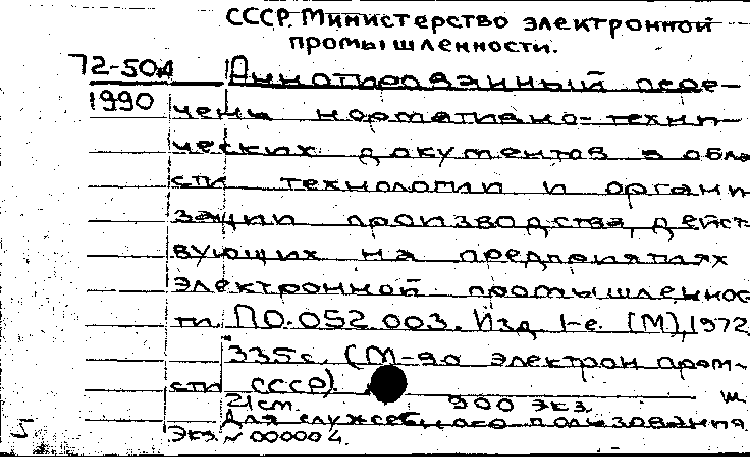 СССР. Министерство электронной
промышленности.
72-504 Аннотированный пере-
1990 чень нормативно-техни-
ческих документов в обла
сти технологии и органи
зации производства, дейст
вующих на предприятиях
электронной промышленнос
ти. ПО.052.003. Изд. 1-е. [М], 1972
335 с. (М-во электрон. пром-
сти СССР).
21 см. 900 экз.
Для служебного пользования
Экз. № 000004.
5